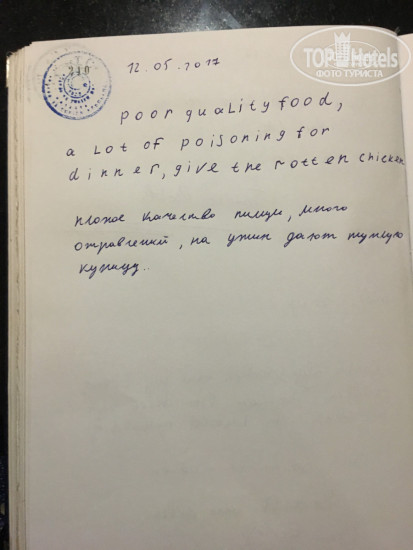 TOP Hotels
ФОТО ТУРИСТА
210
12.05.2017
poor quality food,
a lot of poisoning for
dinner, give the rotten chicken
плохое качество пищи, много
отравлений, на ужин дают тухлую
курицу..